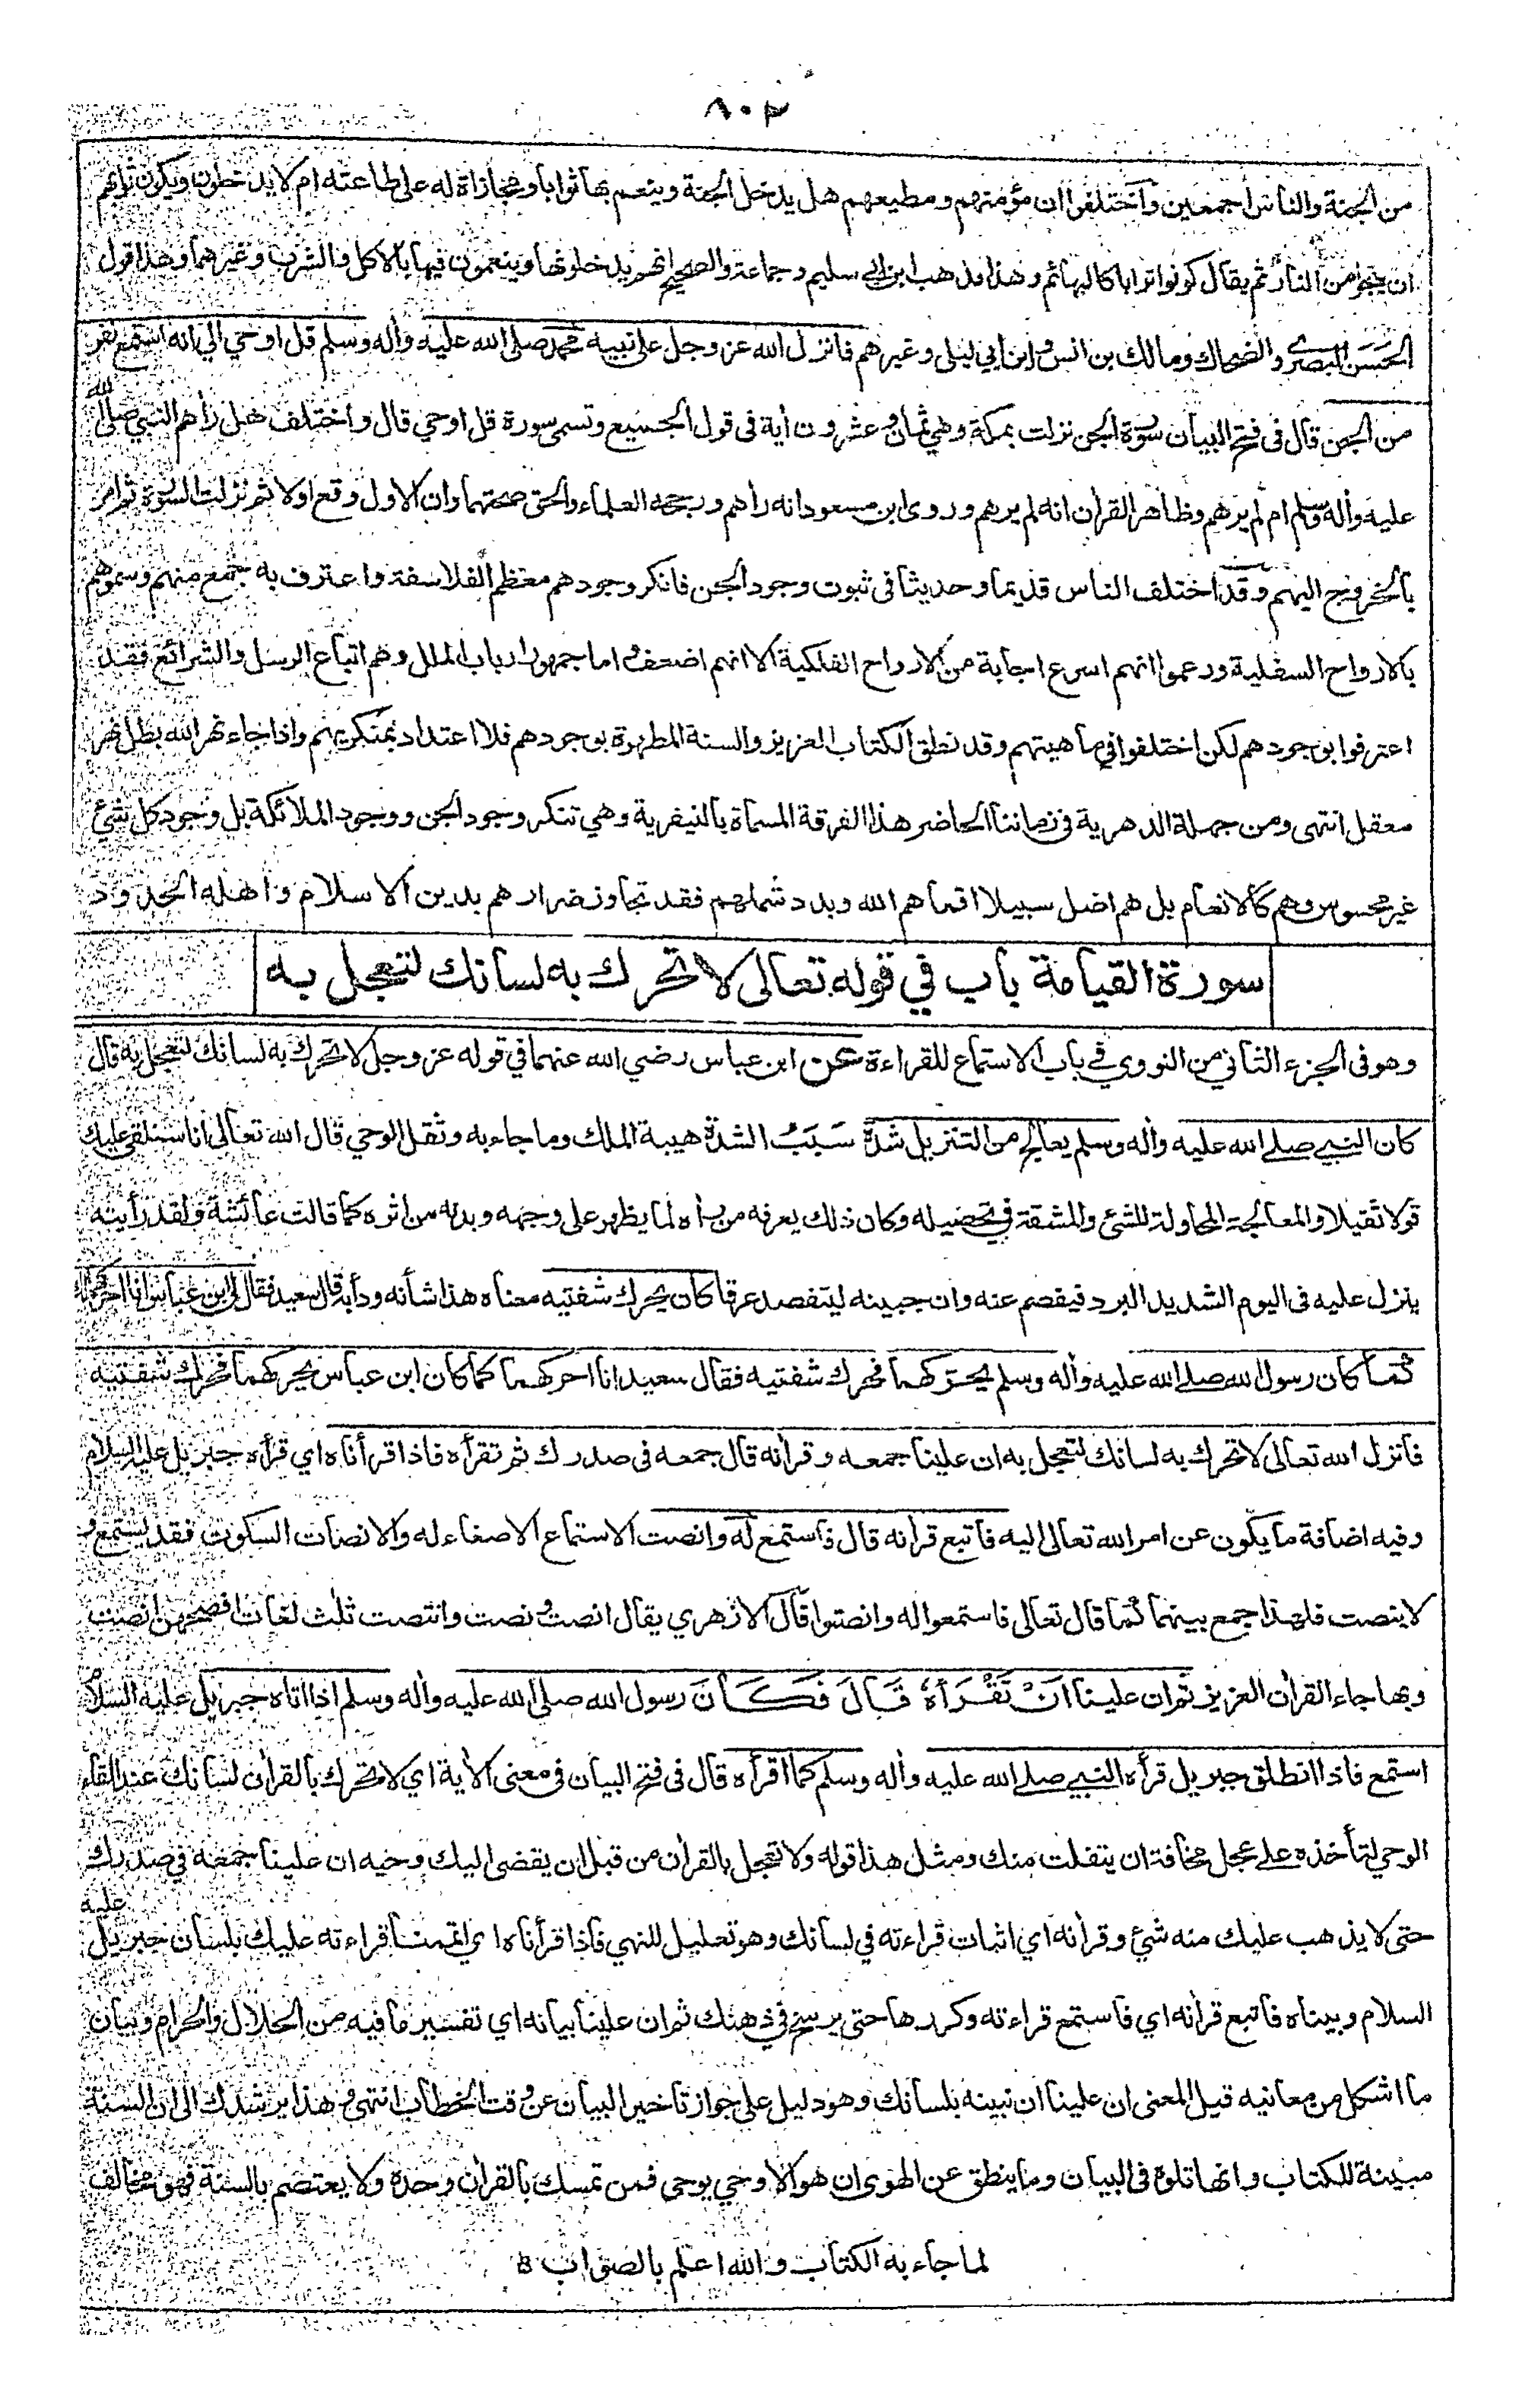 ٨٠٢
من الجنة والناس اجمعين واختلفوا ان مؤمنهم ومطيعهم هل يدخل الجنة وينعم بها ثوابا ومجازاة له على طاعته ام لا يدخلون ويكون ثوابهم
ان ينجوا من النار ثم يقال كونوا ترابا كالبهائم وهذا مذهب ابن ابي سليم وجماعة والصحيح انهم يدخلونها وينعمون فيها بالاكل والشرب وغيرهما وهذا قول
الحسن البصري والضحاك ومالك بن انس وابن ابي ليلى وغيرهم فانزل الله عز وجل على نبيه محمد صلى الله عليه واله وسلم قل اوحي الي انه استمع نفر
من الجن قال في فتح البيان سورة الجن نزلت بمكة وهي ثمان وعشرون اية في قول الجميع وتسمى سورة قل اوحي قال واختلف هل راهم النبي صلى الله
عليه واله وسلم ام لم يرهم وظاهر القران انه لم يرهم وروى ابن مسعود انه راهم ورجحه العلماء والحق صحتهما وان الاول وقع اولا ثم نزلت السورة ثم امر
بالخروج اليهم وقد اختلف الناس قديما وحديثا في ثبوت وجود الجن فانكر وجودهم معظم الفلاسفة واعترف به جمع منهم وسموهم
بالارواح السفلية وزعموا انهم اسرع اجابة من الارواح الفلكية الا انهم اضعف واما جمهور ارباب الملل وهم اتباع الرسل والشرائع فقد
اعترفوا بوجودهم لكن اختلفوا في ماهيتهم وقد نطق الكتاب العزيز والسنة المطهرة بوجودهم فلا اعتداد بمنكريهم واذا جاء نهر الله بطل نهر
معقل انتهى ومن جملة الدهرية في زماننا الحاضر هذا الفرقة المسماة بالنيفرية وهي تنكر وجود الجن ووجود الملائكة بل وجود كل شئ
غير محسوس وهم كالانعام بل هم اضل سبيلا اقماهم الله وبدد شملهم فقد تجاوز ضرارهم بدين الاسلام واهله الحدود
سورة القيامة باب في قوله تعالى لا تحرك به لسانك لتعجل به
وهو في الجزء الثاني من النووي في باب الاستماع للقراءة عن ابن عباس رضي الله عنهما في قوله عز وجل لا تحرك به لسانك لتعجل به قال
كان النبي صلى الله عليه واله وسلم يعالج من التنزيل شدة سَبَبُ الشدة هيبة الملك وما جاء به وثقل الوحي قال الله تعالى انا سنلقي عليك
قولا ثقيلا والمعالجة المحاولة للشئ والمشقة في تحصيله وكان ذلك يعرفه من يراه لما يظهر على وجهه وبدنه من اثره كما قالت عائشة ولقد رأيته
ينزل عليه في اليوم الشديد البرد فيفصم عنه وان جبينه ليتفصد عرقا كان يحرك شفتيه معناه هذا شأنه ودأبه قال سعيد فقال لي ابن عباس انا احركهما لك
كما كان رسول الله صلى الله عليه واله وسلم يحركهما فحرك شفتيه فقال سعيد انا احركهما كما كان ابن عباس يحركهما فحرك شفتيه
فانزل الله تعالى لا تحرك به لسانك لتعجل به ان علينا جمعه وقرانه قال جمعه في صدرك ثم تقرأه فاذا قرأناه اي قرأه جبريل عليه السلام
وفيه اضافة ما يكون عن امر الله تعالى اليه فاتبع قرانه قال فاستمع له وانصت الاستماع الاصغاء له والانصات السكوت فقد يستمع و
لا ينصت فلهذا جمع بينهما كما قال تعالى فاستمعوا له وانصتوا قال الازهري يقال انصت ونصت وانتصت ثلث لغات افصحهن انصت
وبها جاء القران العزيز ثم ان علينا انْ تَقْرَأهُ قَالَ فَكَانَ رسول الله صلى الله عليه واله وسلم اذا اتاه جبريل عليه السلام
استمع فاذا انطلق جبريل قرأه النبي صلى الله عليه واله وسلم كما اقرأه قال في فتح البيان في معنى الاية اي لا تحرك بالقران لسانك عند القاء
الوحي لتأخذه على عجل مخافة ان يتفلت منك ومثل هذا قوله ولا تعجل بالقران من قبل ان يقضى اليك وحيه ان علينا جمعه في صدرك
حتى لا يذهب عليك منه شئ وقرانه اي اثبات قراءته في لسانك وهو تعليل للنهي فاذا قرأناه اي اتممنا قراءته عليك بلسان جبريل عليه
السلام وبيناه فاتبع قرانه اي فاستمع قراءته وكررها حتى يرسخ في ذهنك ثم ان علينا بيانه اي تفسير ما فيه من الحلال والحرام وبيان
ما اشكل من معانيه قيل المعنى ان علينا ان نبينه بلسانك وهو دليل على جواز تاخير البيان عن وقت الخطاب انتهى وهذا يرشدك الى ان السنة
مبينة للكتاب وانها تلوه في البيان وما ينطق عن الهوى ان هو الا وحي يوحى فمن تمسك بالقران وحده ولا يعتصم بالسنة فهو مخالف
لما جاء به الكتاب والله اعلم بالصواب